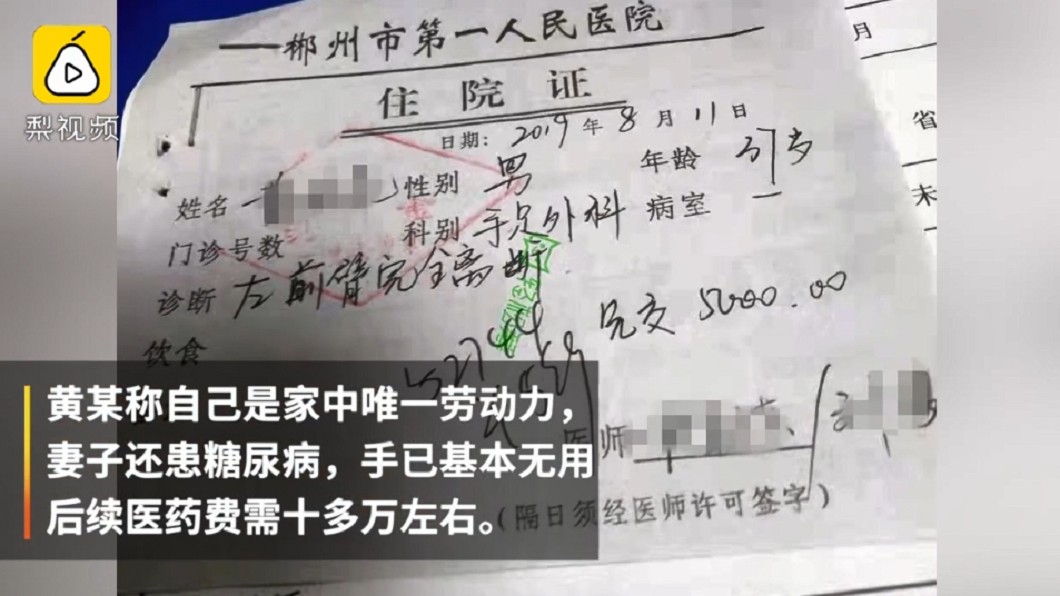 梨视频
郴州市第一人民医院
住院证
日期: 2019年8月11日
姓名 性别 男 年龄
门诊号数 科别 手足外科 病室 一
诊断 左前臂完全离断
饮食
先交 5000.00
医师
(隔日须经医师许可签字)
月
省
未
黄某称自己是家中唯一劳动力，
妻子还患糖尿病，手已基本无用
后续医药费需十多万左右。